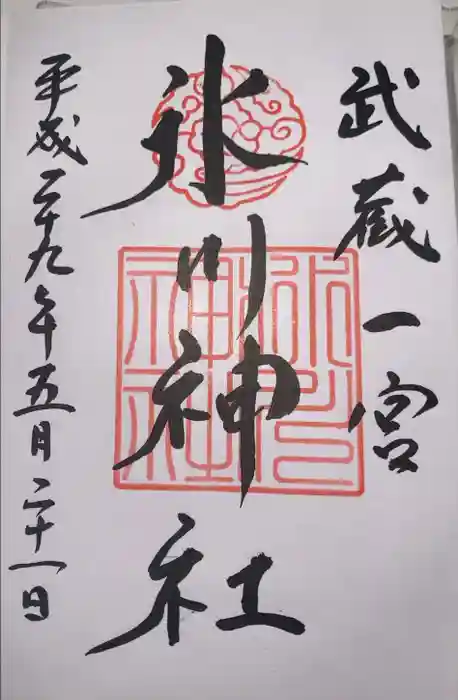 武蔵一宮
氷川神社
平成二十九年五月二十一日
氷川神社